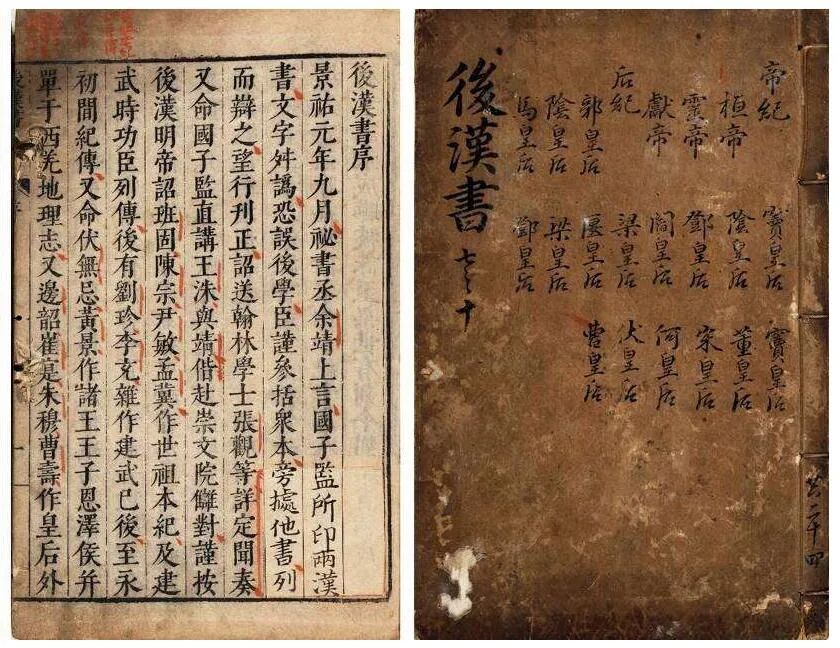 後漢書序
景祐元年九月祕書丞余靖上言國子監所印兩漢
書文字舛譌恐誤後學臣謹參括衆本旁據他書列
而辯之望行刊正詔送翰林學士張觀等詳定聞奏
又命國子監直講王洙與靖偕赴崇文院讎對謹按
後漢明帝詔班固陳宗尹敏孟冀作世祖本紀及建
武時功臣列傳後有劉珍李充雜作建武已後至永
初間紀傳又命伏無忌黃景作諸王王子恩澤侯并
單于西羌地理志又邊韶崔寔朱穆曹壽作皇后外
共二十四
帝紀 竇皇后 竇皇后
桓帝 陰皇后 董皇后
靈帝 鄧皇后 宋皇后
獻帝 閻皇后 何皇后
后紀 梁皇后 伏皇后
郭皇后 匽皇后 曹皇后
陰皇后 梁皇后
馬皇后 鄧皇后
後漢書 七之十